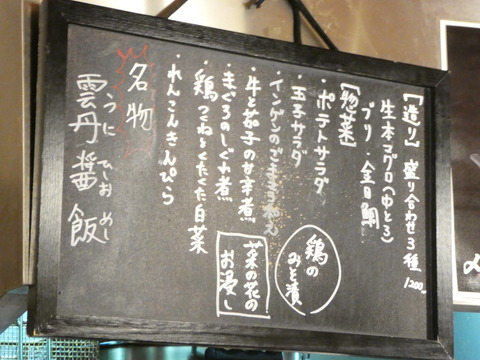 【造り】盛り合わせ3種 1200
生本マグロ(中とろ)
ブリ・金目鯛
【惣菜】
・ポテトサラダ
・玉子サラダ
・インゲンのごまよごし
・牛と茄子の甘辛煮
・まぐろのしぐれ煮
・鶏つくねとくたくた白菜
・れんこんきんぴら
鶏のみそ漬
菜の花のお浸し
名物
雲丹醤飯
うに ひしお めし